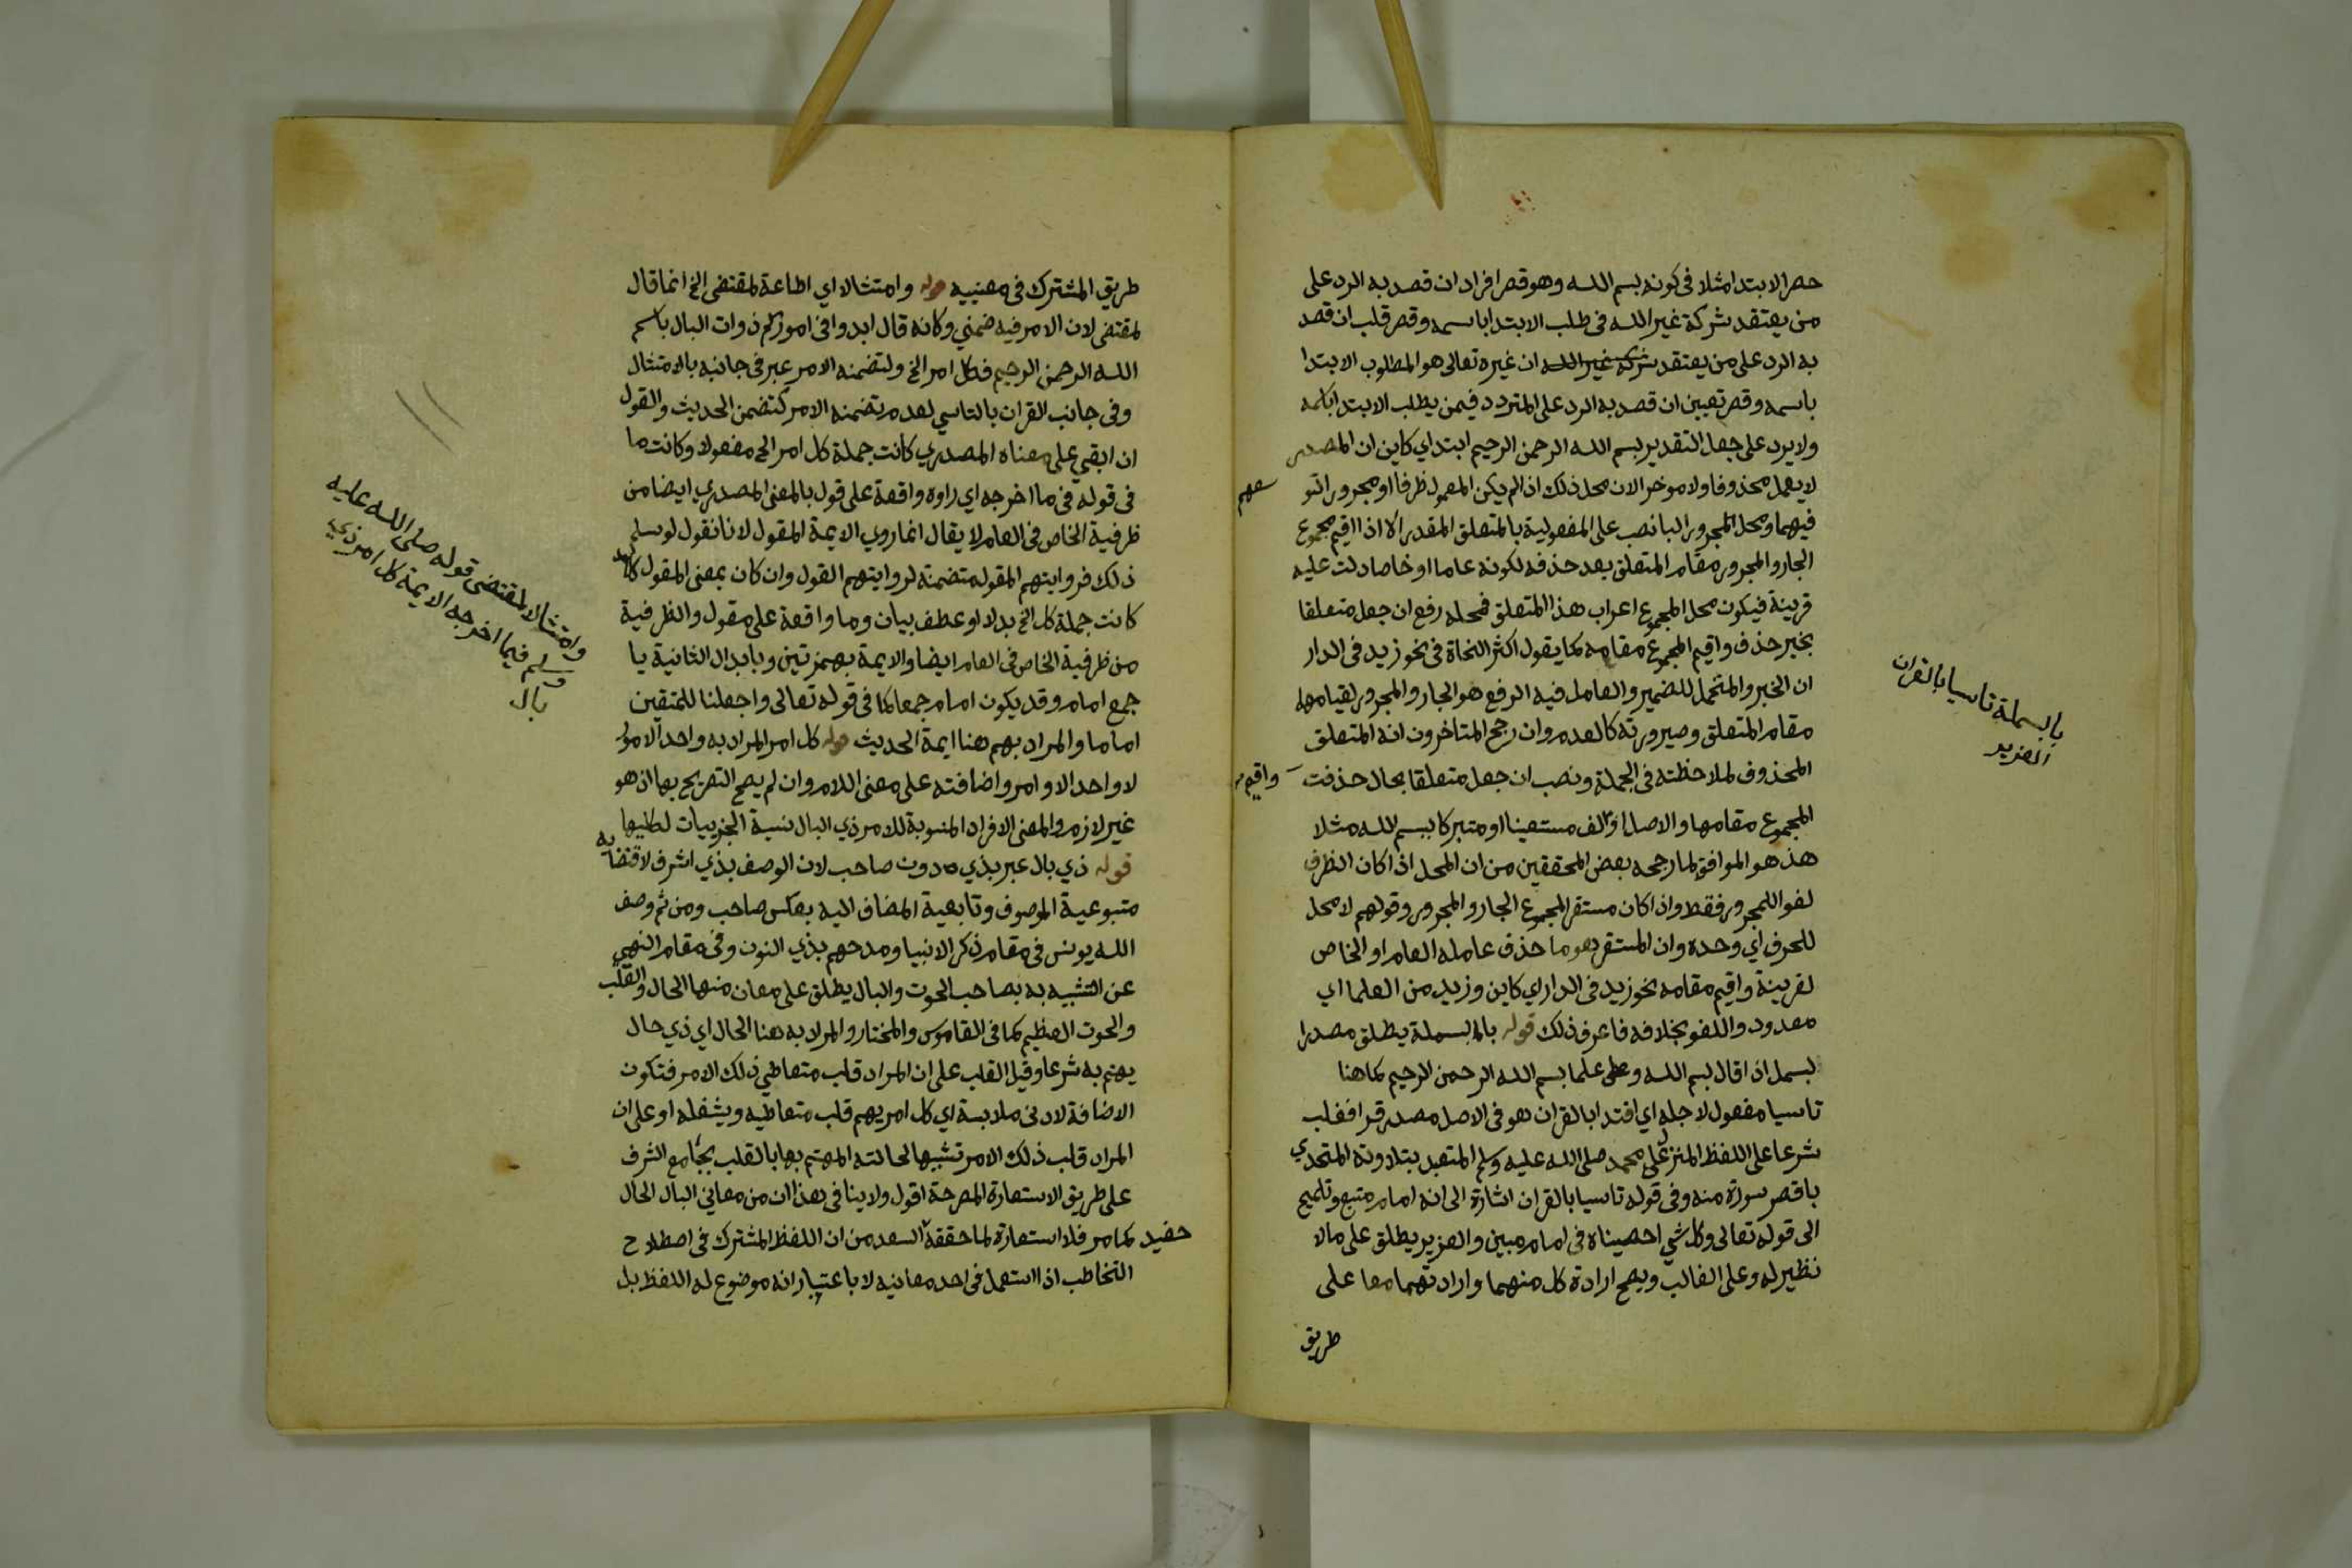 حصر الابتدا مثلا فى كونه بسم الله وهو قصر افراد ان قصد به الرد على
من يعتقد شركة غير الله فى طلب الابتدا باسمه وقصر قلب ان قصد
به الرد على من يعتقد شركة غير الله ان غيره تعالى هو المطلوب الابتدا
باسمه وقصر تعيين ان قصد به الرد على المتردد فيمن يطلب الابتدا باسمه
ولا يرد على جعل التقدير بسم الله الرحمن الرحيم ابتداي كاين ان المصدر
لا يعمل محذوفا ولا موخرا لان محل ذلك اذا لم يكن المعمول ظرفا او مجرورا
فيهما ومحل المجرور البا نصب على المفعولية بالمتعلق المقدر الا اذا اقيم مجموع
الجار والمجرور مقام المتعلق بعد حذفه لكونه عاما او خاصا دلت عليه
قرينة فيكون محل المجموع اعراب هذا المتعلق فمحله رفع ان جعل متعلقا
بخبر حذف واقيم المجموع مقامه كما يقول اكثر النحاة فى نحو زيد فى الدار
ان الخبر والمتحمل للضمير والعامل فيه الرفع هو الجار والمجرور لقيامهما
مقام المتعلق وصيرورته كالعدم وان رجح المتاخرون انه المتعلق
المحذوف لملاحظته فى الجملة ونصب ان جعل متعلقا بحال حذفت واقيم
المجموع مقامها والاصل اؤلف مستعينا او متبركا ببسم الله مثلا
هذا هو الموافق لما رجحه بعض المحققين من ان المحل اذا كان الظرف
لغوا للمجرور فقط واذا كان مستقر المجموع الجار والمجرور وقولهم لا محل
للحرف اي وحده وان المستقر هو ما حذف عامله العام او الخاص
لقرينة واقيم مقامه نحو زيد فى الدار اي كاين وزيد من العلما اي
معدود واللغو بخلافه فاعرف ذلك قوله بالبسملة يطلق مصدرا
لبسمل اذا قال بسم الله وعلى علما بسم الله الرحمن الرحيم كما هنا
تاسيا مفعول لاجله اي اقتدا بالقران هو فى الاصل مصدر قرا فغلب
شرعا على اللفظ المنزل على محمد صلى الله عليه وسلم المتعبد بتلاوته المتحدي
باقصر سورة منه وفى قوله تاسيا بالقران اشارة الى انه امام متبع وتلميح
الى قوله تعالى وكل شي احصيناه فى امام مبين والعزيز يطلق على ما لا
نظير له وعلى الغالب ويصح ارادة كل منهما وارادتهما معا على
طريق
بالبسملة تاسيا بالقران
العزيز
طريق المشترك فى معنييه قوله وامتثالا اي اطاعة لمقتضى الخ انما قال
لمقتضى لان الامر فيه ضمني وكانه قال ابدوا فى اموركم ذوات البال باسم
الله الرحمن الرحيم فكل امر الخ ولتضمنه الامر عبر فى جانبه بالامتثال
وفى جانب القران بالتاسي لعدم تضمنه الامر كتضمن الحديث والقول
ان ابقي على معناه المصدري كانت جملة كل امر الخ مفعولا وكانت ما
فى قوله فى ما اخرجه اي راوه واقعة على قول بالمعنى المصدري ايضا من
ظرفية الخاص فى العام لا يقال انما روي الايمة المقول لانا نقول لو سلم
ذلك فروايتهم المقوله متضمنة لروايتهم القول وان كان بمعنى المقول
كانت جملة كل الخ بدلا او عطف بيان وما واقعة على مقول والظرفية
من ظرفية الخاص فى العام ايضا والايمة بهمزتين وبابدال الثانية يا
جمع امام وقد يكون امام جمعا كما فى قوله تعالى واجعلنا للمتقين
اماما والمراد بهم هنا ايمة الحديث قوله كل امر المراد به واحد الامور
لا واحد الاوامر واضافته على معنى اللام وان لم يصح التصريح بها اذ هو
غير لازم والمعنى الافراد المنسوبة للامر ذي البال نسبة الجزييات لكليها
قوله ذي بال عبر بذي دون صاحب لان الوصف بذي اشرف لاقتضايه
متبوعية الموصوف وتابعية المضاف اليه بعكس صاحب ومن ثم وصف
الله يونس فى مقام ذكر الانبيا ومدحهم بذي النون وفى مقام النهي
عن التشبيه به بصاحب الحوت والبال يطلق على معان منها الحال والقلب
والحوت العظيم كما فى القاموس والمختار والمراد به هنا الحال اي ذي حال
يهتم به شرعا وقيل القلب على ان المراد قلب متعاطي ذلك الامر فتكون
الاضافة لادنى ملابسة اي كل امر يهم قلب متعاطيه ويشغله او على ان
المراد قلب ذلك الامر تشبيها لحالته المهتم بها بالقلب بجامع الشرف
على طريق الاستعارة المصرحة اقول ولا ينافى هذا ان من معاني البال الحال
كما مر فلا استعارة لما حققه حفيد السعد من ان اللفظ المشترك فى اصطلاح
التخاطب اذا استعمل فى احد معانيه لا باعتبار انه موضوع له اللفظ بل
وامتثالا لمقتضى قوله صلى الله عليه
وسلم فيما اخرجه الايمة كل امر ذي
بال